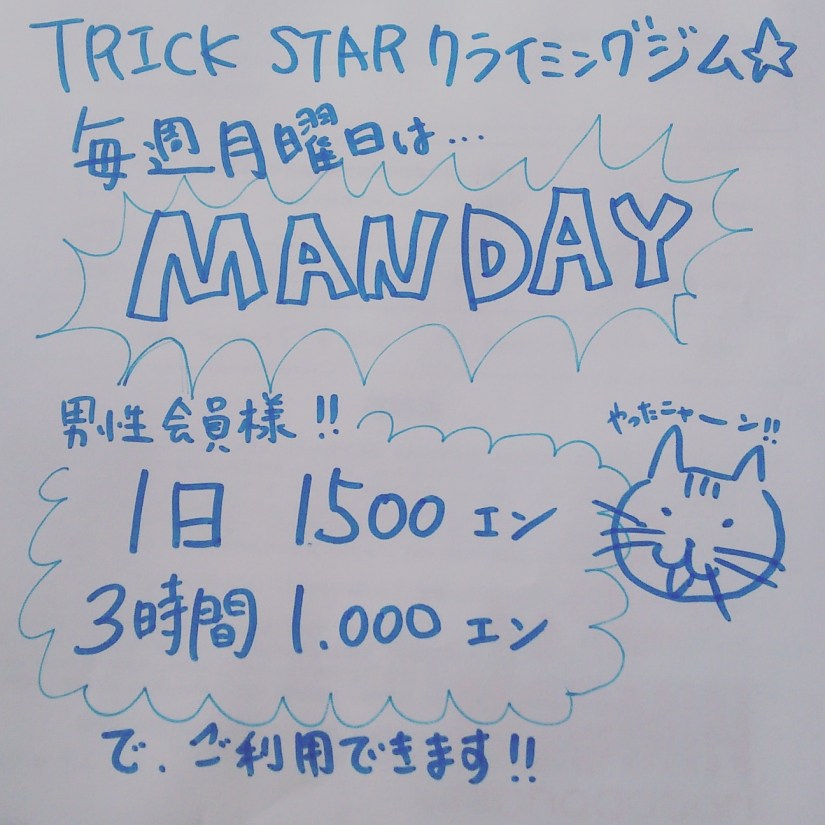 TRICK STAR クライミングジム☆
毎週月曜日は…
MANDAY
男性会員様!!
やったニャーン!!
1日 1.500 エン
3時間 1.000 エン
で、ご利用できます!!